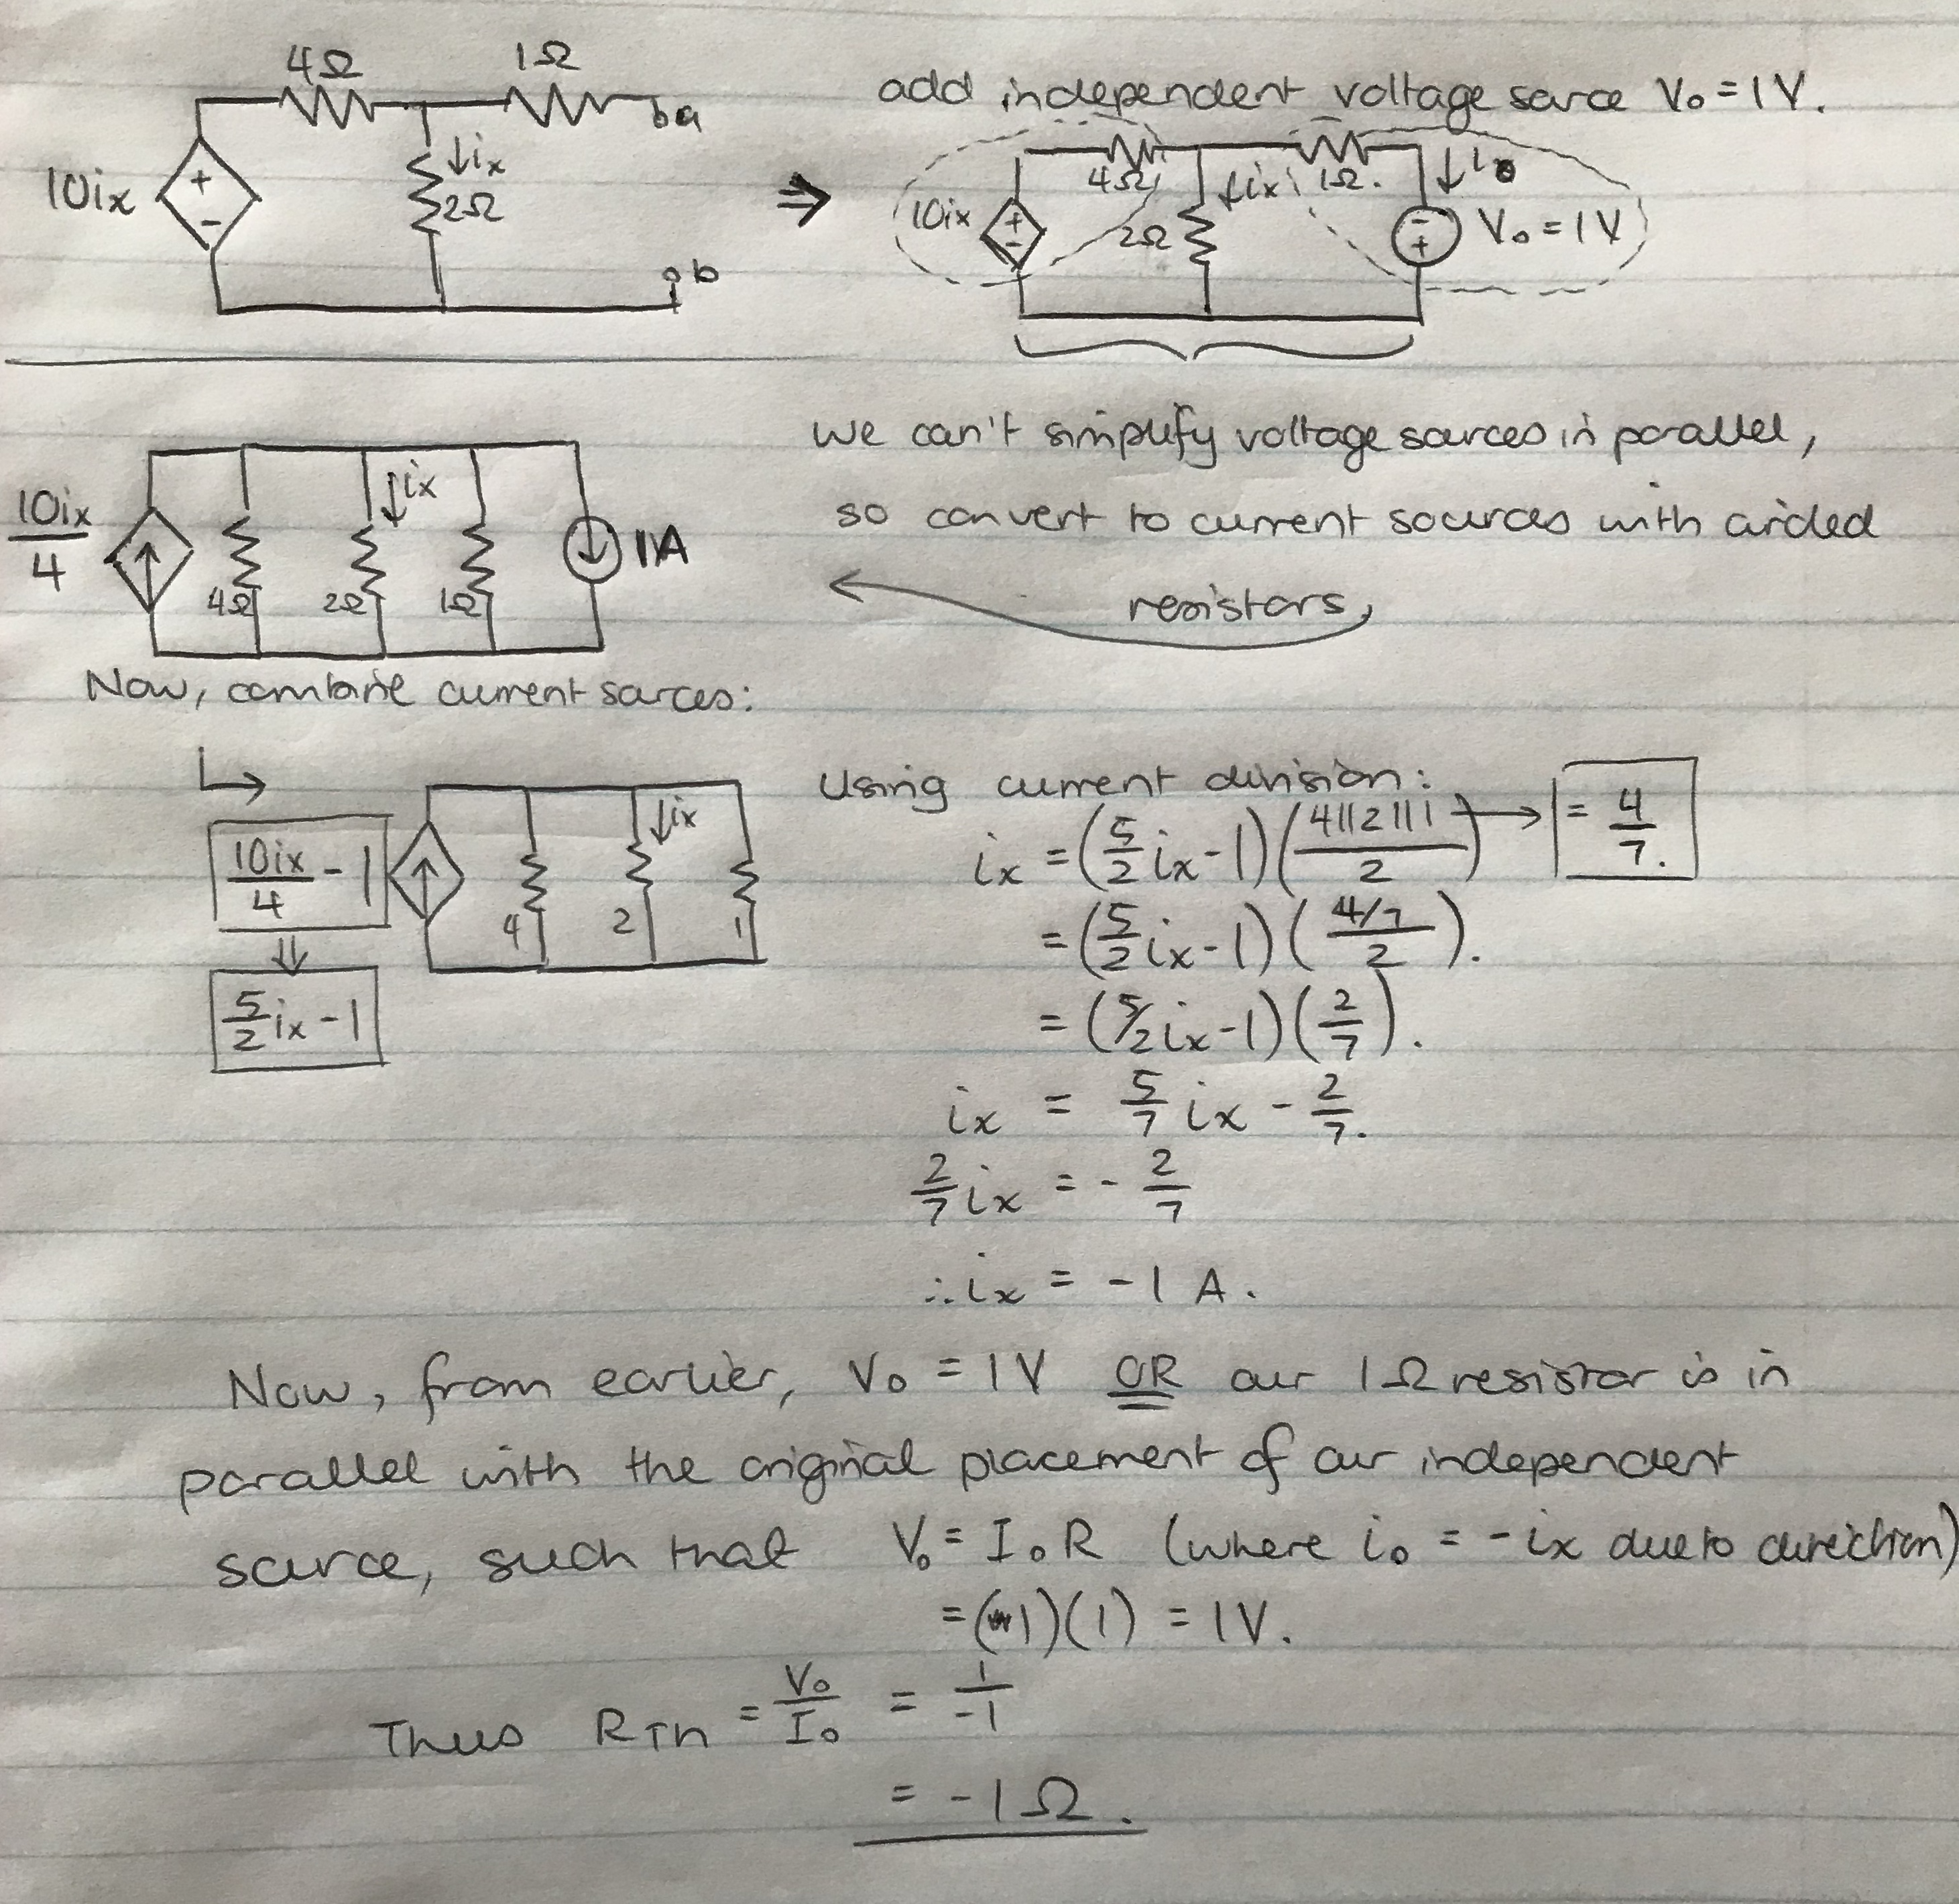 4Ω 1Ω
a
10ix + - ↓ix 2Ω
b
⇒
add independent voltage sarce Vo = 1V.
10ix + - 4Ω 2Ω ↓ix 1Ω. ↓io - + Vo = 1V
We can't simplify voltage sources in parallel,
so convert to current sources with added
resistors,
10ix/4 ↑ 4Ω 2Ω ↓ix 1Ω ↓ 1A
Now, combine current sarces:
10ix/4 - 1 ↑ 4 2 ↓ix 1
⇓
5/2 ix - 1
Using current division:
ix = (5/2 ix - 1)(4||2||1 / 2) → = 4/7.
= (5/2 ix - 1)(4/7 / 2).
= (5/2 ix - 1)(2/7).
ix = 5/7 ix - 2/7.
2/7 ix = - 2/7
∴ ix = -1 A.
Now, from earlier, Vo = 1V OR our 1Ω resistor is in
parallel with the original placement of our independent
sarce, such that Vo = IoR (where io = -ix due to direction)
= (1)(1) = 1V.
Thus RTh = Vo/Io = 1/-1
= -1Ω.